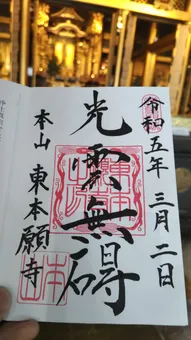 令和五年 三月二日
光雲無碍
本山 東本願寺